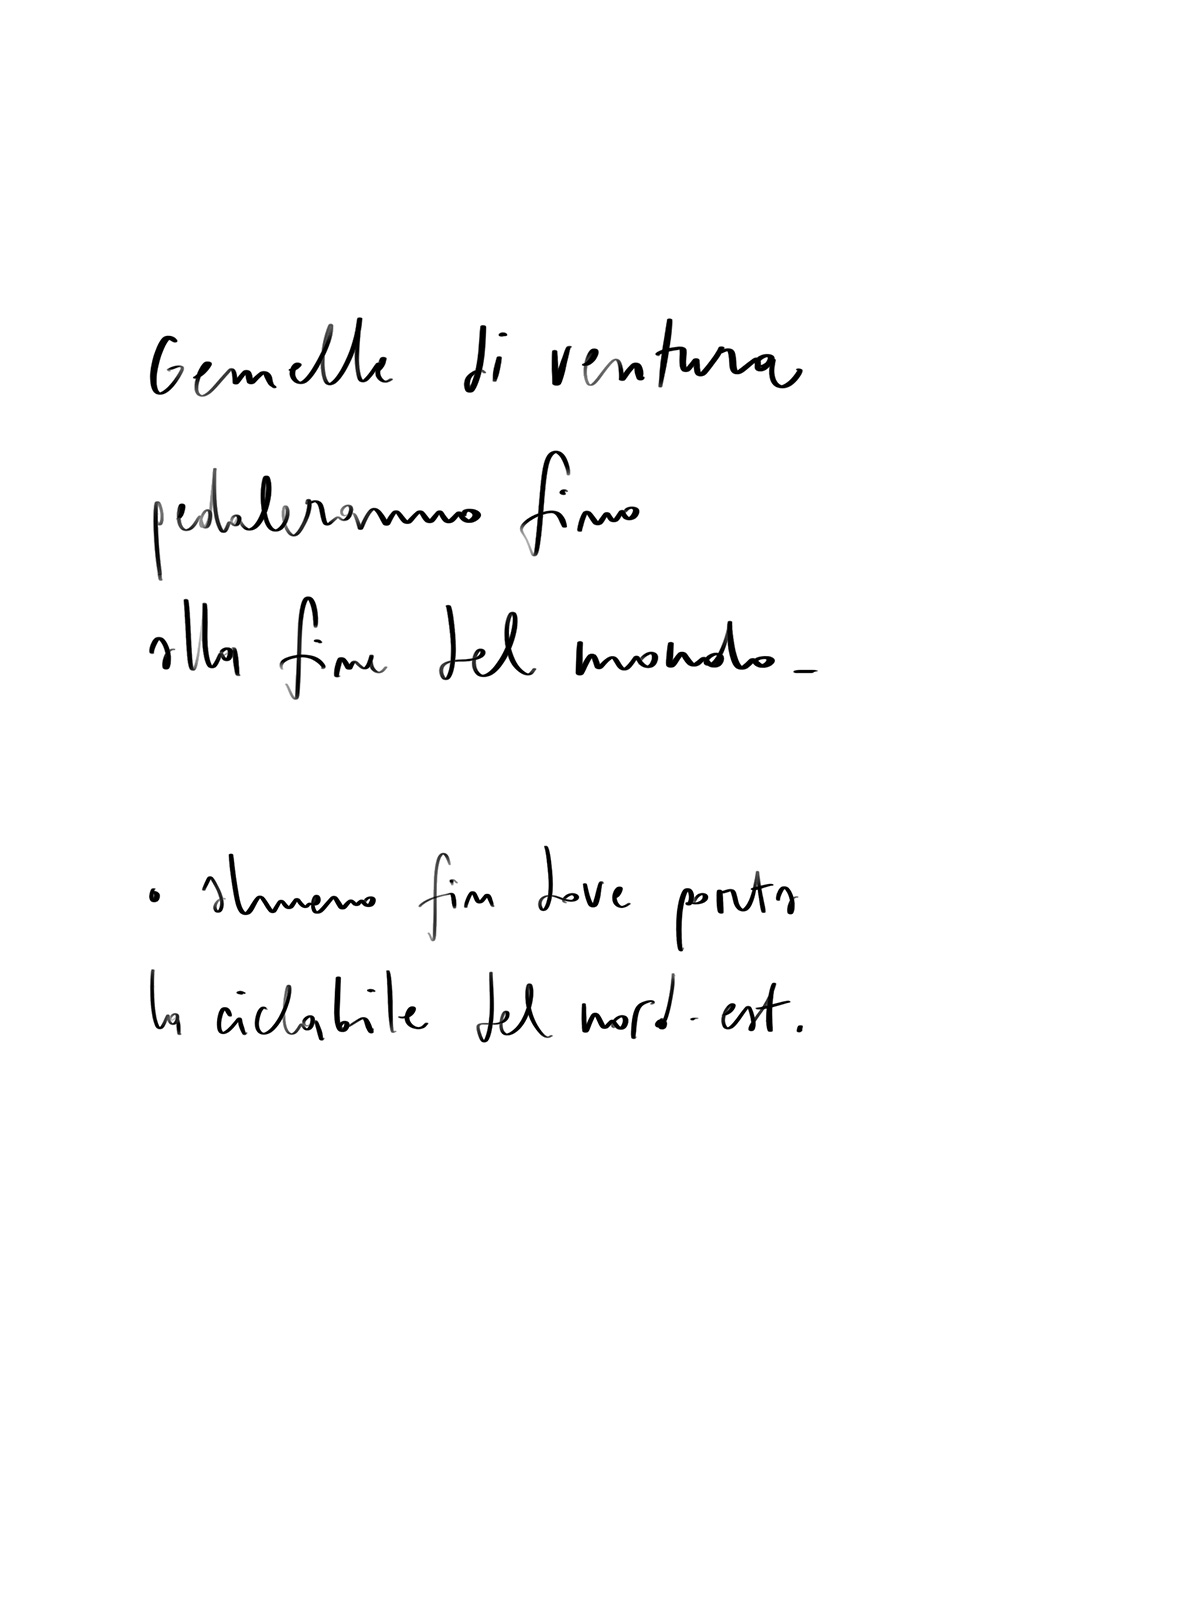 Gemelle di ventura
pedaleranno fino
alla fine del mondo_
• almeno fin dove porta
la ciclabile del nord-est.